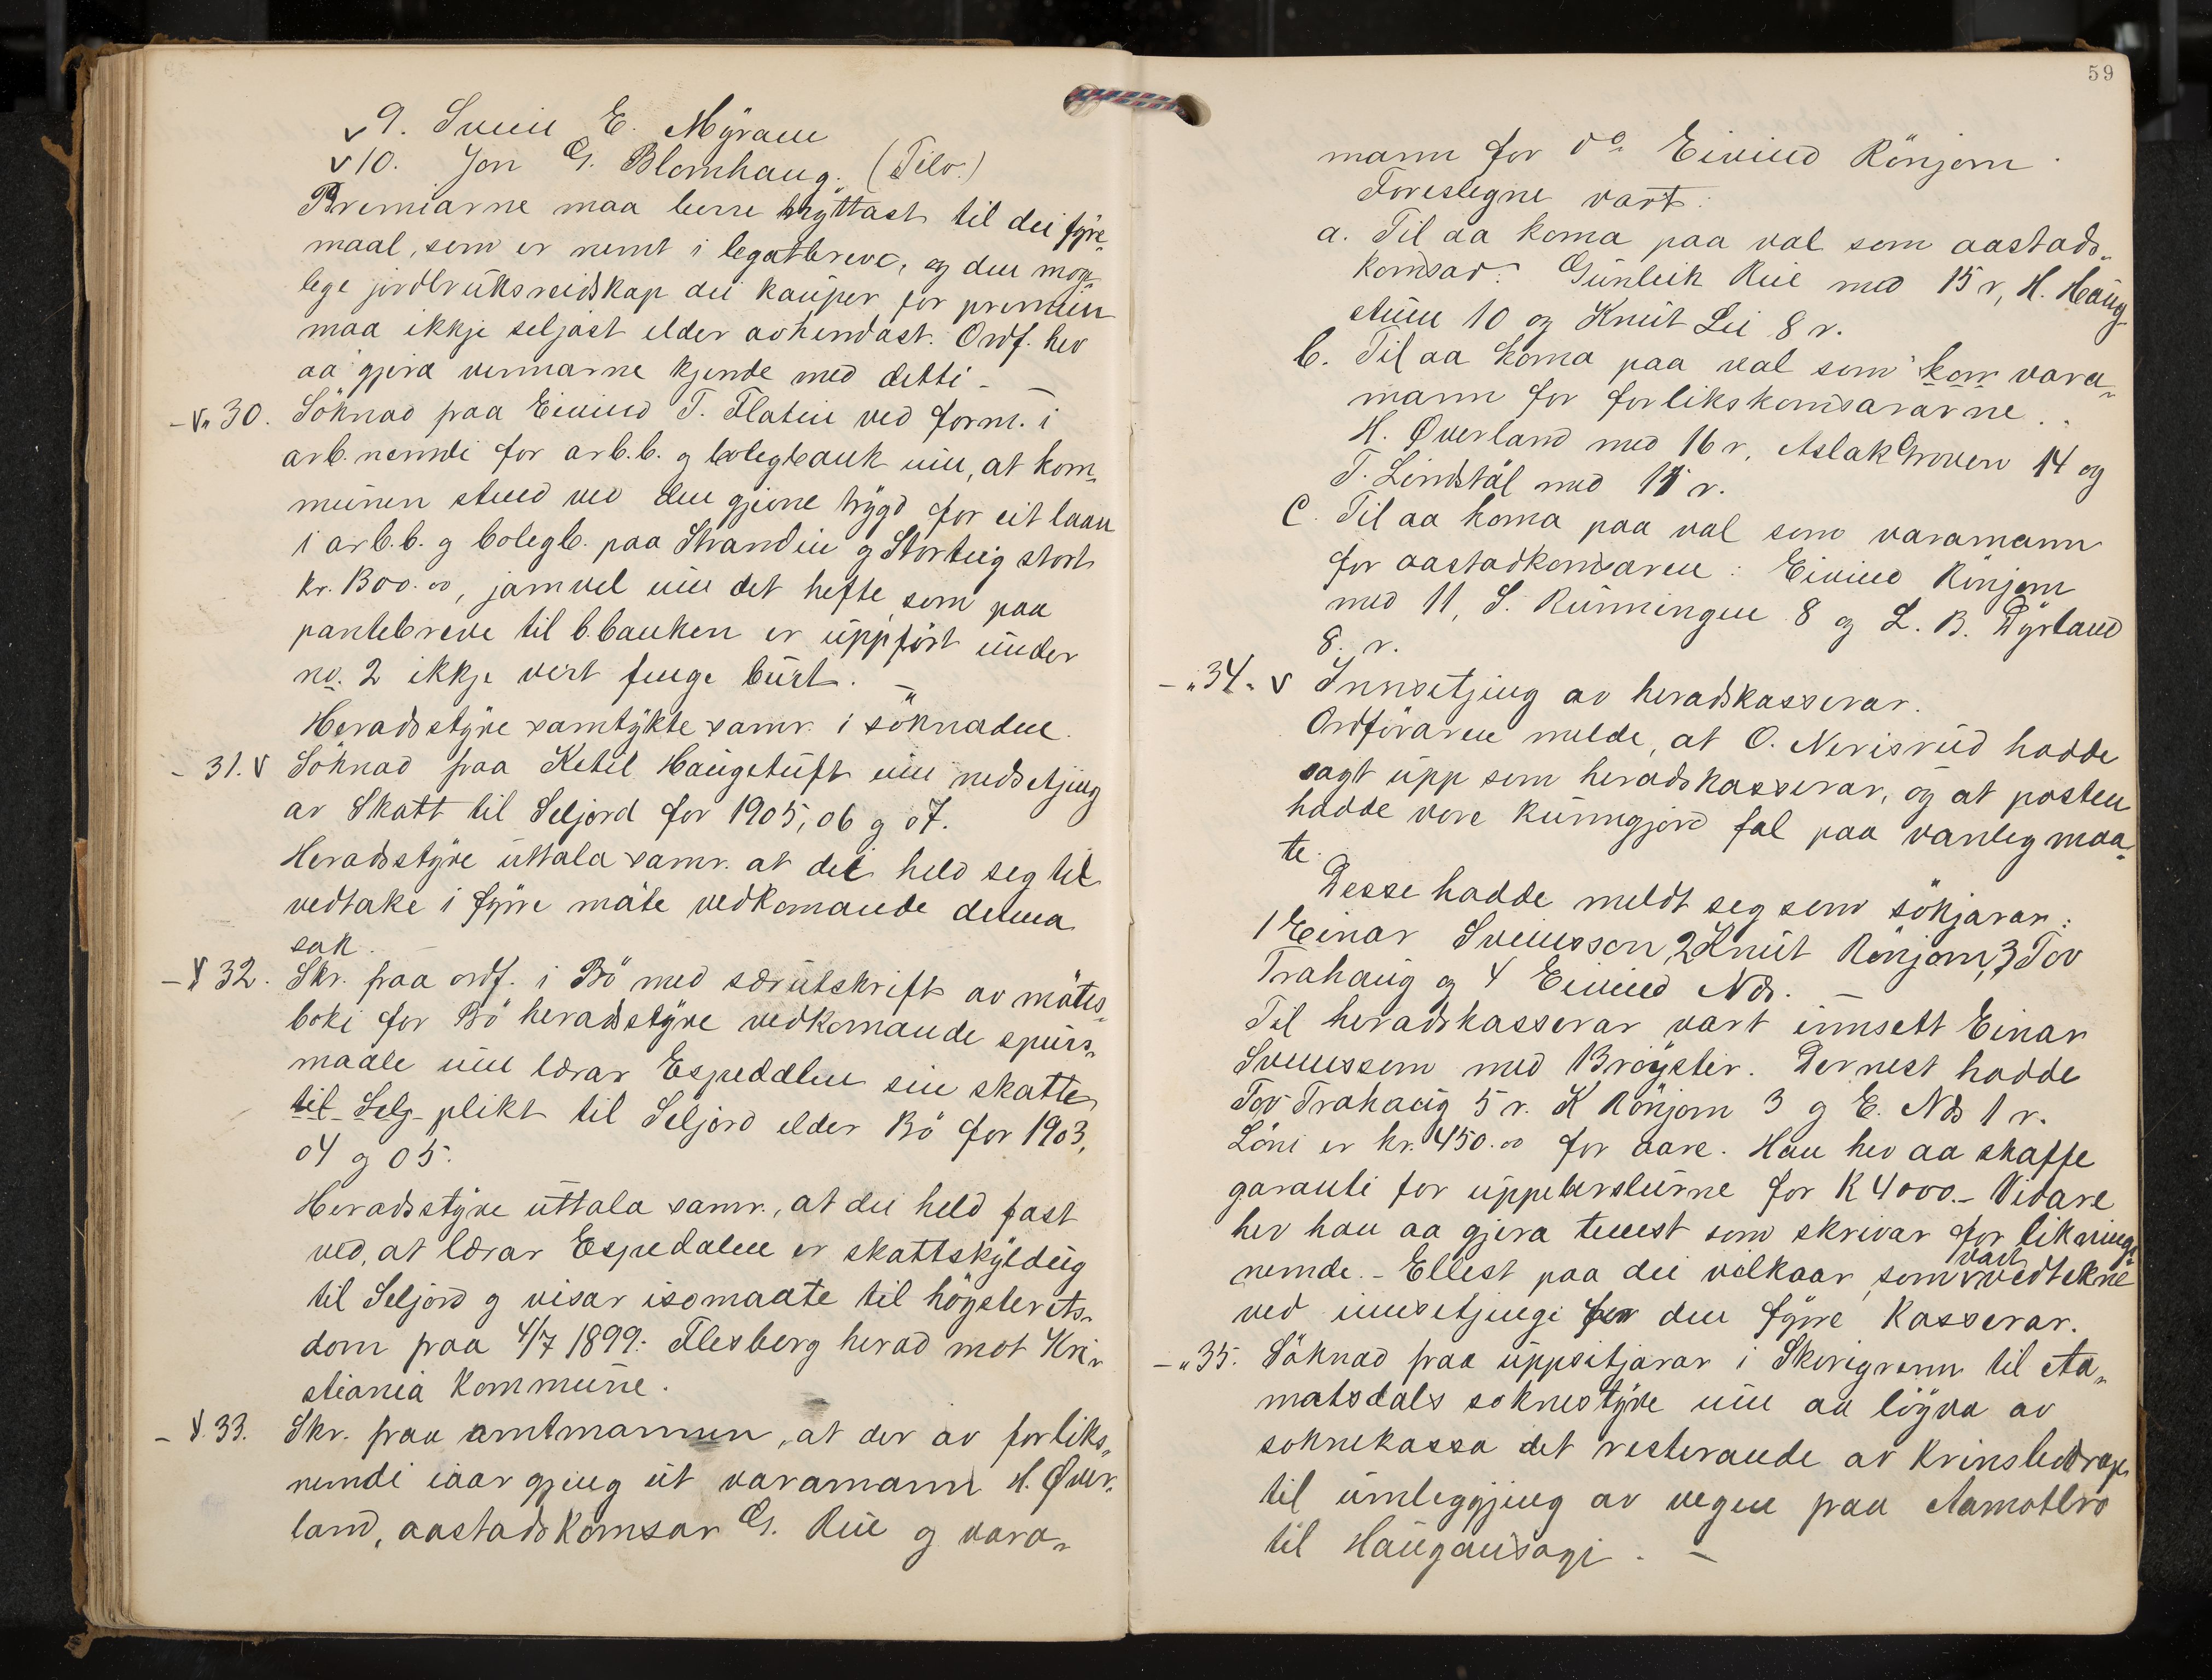 9. Svein E. Myraum
10. Jon G. Blomhaug. (Tilv.)
Premiarne maa berre nyttast til dei fyre„
maal, som er nemt i legatbreve, og den mog„
lege jordbruksreidskap dei kauper for premien
maa ikkje seljast elder avhendast. Ordf. hev
aa gjera vinnarne kjende med detti –
–„ 30. Söknad fraa Eivind T. Flatin ved form. i
arb.nemdi for arb.b. og bolegbank um, at kom„
munen stend ved den gjevne trygd for eit laan
i arb.b. og bolegb. paa Strandin og Storteig stort
kr. 1300.00, jamvel um det hefte som paa
pantebreve til b.banken er uppfört under
no. 2 ikkje vert fenge burt. –
Heradsstyre samtykte samr. i söknaden.
– 31. Söknad fraa Ketil Haugetuft um nedsetjing
av Skatt til Seljord for 1905, 06 og 07.
Heradsstyre uttala samr. at dei held seg til
vedtake i fyrre möte vedkomande denna
sak.
– 32. Skr. fraa ordf. i Bö med særutskrift av mötes„
boki for Bö heradsstyre vedkomande spurs„
maale um lærar Espedalen sin skatte
til Selj- plikt til Seljord elder Bö for 1903,
04 og 05.
Heradsstyre uttala samr., at dei held fast
ved, at lærar Espedalen er skattskyldug
til Seljord og visar isomaate til högsterets„
dom fraa 4/7 1899: Flesberg herad mot Kri„
stiania Kommune.
– 33. Skr. fraa amtmannen, at der av forliks„
nemdi iaar gjeng ut varamann H. Øver„
land, aastadskomsar G. Rue og vara„
59
mann for do Eivind Rönjom.
Foreslegne vart:
a. Til aa koma paa val som aastads„
komsar: Gunleik Rue med 15 r, H. Haug
stuen 10 og Knut Lei 8 r.
b. Til aa koma paa val som kom vara„
mann for forlikskomsararne:
H. Øverland med 16 r, Aslak Groven 14 og
T. Lindstöl med 11 r.
C. Til aa koma paa val som varamann
for aastadkomsaren: Eivind Rönjom
med 11, S. Runningen 8 og L. B. Dyrland
8. r.
–„34. Innsetjing av heradskasserar.
Ordföraren melde, at O. Nerisrud hadde
sagt upp som heradskasserar, og at posten
hadde vore kunngjord fal paa vanleg maa„
te.
Desse hadde meldt seg som sökjarar:
1 Einar Sveinsson, 2 Knut Rönjom, 3 Tov
Trahaug og 4 Eivind Nds. –
Til heradskasserar vart innsett Einar
Sveinsson med 13 röyster. Dernest hadde
Tov Trahaug 5 r. K Rönjom 3 og E. Nds 1 r.
Löni er kr. 450.00 for aare. Han hev aa skaffe
garanti for uppebörslurne for K 4000.- Vidare
hev han aa gjera tenest som skrivar for liknings„
nemde. – Ellest paa dei vilkaar, som vart vedtekne
ved innsetjingi for den fyrre Kasserar.
–„35. Söknad fraa uppsitjarar i Skorigrenn til Aa„
matsdals soknestyre um aa löyva av
soknekassa det resterande av krinsbidrag
til umleggjing av vegen fraa Aamotbro
til Haugansagi. –